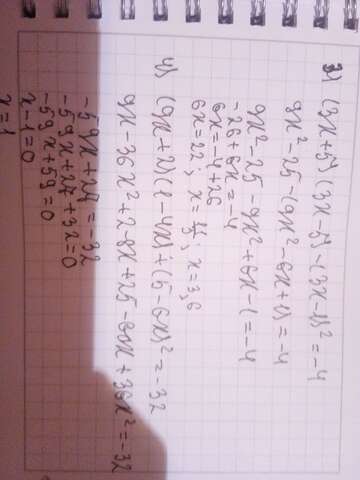 3) (3x+5)(3x-5)-(3x-1)²=-4
9x²-25-(9x²-6x+1)=-4
9x²-25-9x²+6x-1=-4
-26+6x=-4
6x=-4+26
6x=22; x=22/6; x=3,6
4) (9x+2)(1-4x)+(5-6x)²=-32
9x-36x²+2-8x+25-60x+36x²=-32
-59x+27=-32
-59x+27+32=0
-59x+59=0
x-1=0
x=1